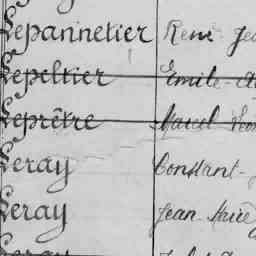 Lepannetier René
Lepeltier Emile
Leprêtre Marcel
Leray Constant-
Leray Jean-Marie